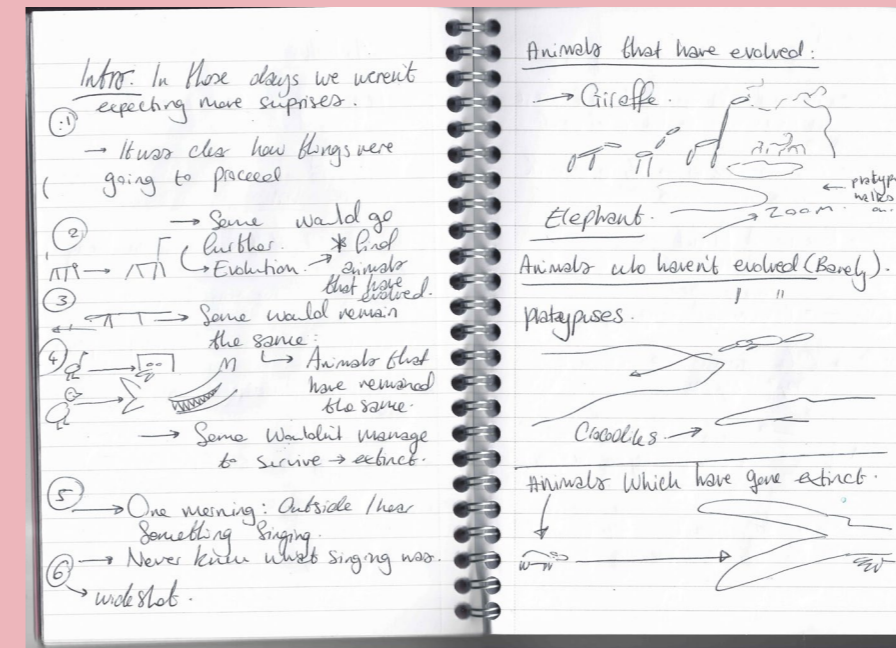 Intro: In those days we weren't
expecting more suprises.
:1
→ It was clear how things were
going to proceed
2
→ Some would go
further.
→ Evolution → * find
animals
that have
evolved.
3
→ Some would remain
the same:
4
→ Animals that
have remained
the same.
→ Some Wouldn't manage
to survive → extinct.
5
→ One morning: Outside I hear
Something Singing.
6
→ Never knew what singing was.
→ wide shot.
Animals that have evolved:
→ Giraffe.
platyp
walks
on
Elephant. → Zoom.
Animals who haven't evolved (Barely).
" "
platypuses.
Crocodiles →
Animals Which have gone extinct.